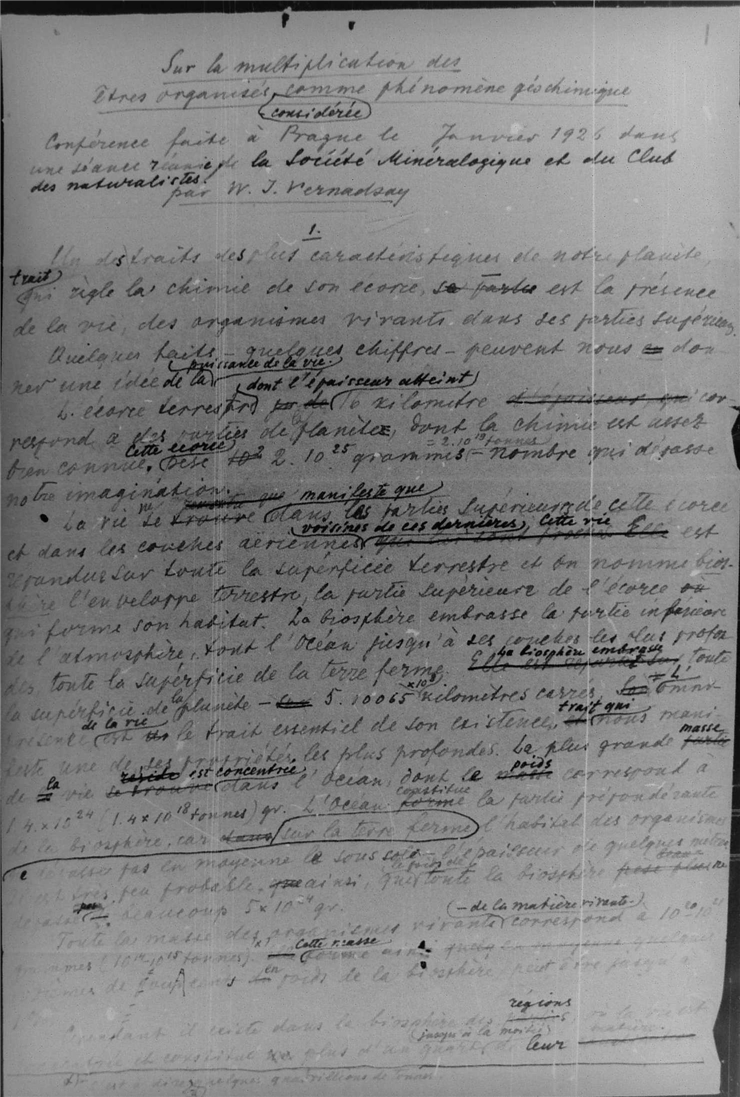 1
Sur la multiplication des
Êtres organisés comme phénomène géochimique
considérée
Conférence faite à Prague le Janvier 1926 dans
une séance réunie de la Société Minéralogique et du Club
des naturalistes.
par W. J. Vernadsky
1.
Un des traits des plus caractéristiques de notre planète,
trait
qui règle la chimie de son écorce, est la présence
de la vie, des organismes vivants dans ses parties supérieures
Quelques faits – quelques chiffres – peuvent nous don-
puissance de la vie.
ner une idée de la
dont l'épaisseur atteint
L'écorce terrestre 16 kilomètre cor-
respond à des parties de planète, dont la chimie est assez
Cette écorce = 2.10¹⁹ tonnes
bien connue. pèse 2.10²⁵ grammes – nombre qui dépasse
notre imagination.
ne que manifeste que
La vie se trouve dans les parties supérieures de cette écorce
voisines de ces dernières, Cette vie
et dans les couches aériennes Elle est
répandue sur toute la superficie terrestre et on nomme bios-
phère l'enveloppe terrestre, la partie supérieure de l'écorce où
qui forme son habitat. La biosphère embrasse la partie inférieure
de l'atmosphère, tout l'Océan jusqu'à ses couches les plus profon
la biosphère embrasse
des, toute la superficie de la terre ferme. toute
la superficie de la planète – 5.10065 kilomètres carrés, omni-
de la vie trait qui
présence est le trait essentiel de son existence, nous mani
masse
feste une de ses propriétés les plus profondes. La plus grande partie
la réside est concentrée poids
de vie se trouve dans l'Océan, dont le correspond à
constitue
1.4×10²⁴ (1.4×10¹⁸ tonnes) gr. L'Océan forme la partie prépondérante
de la biosphère, car dans sur la terre ferme l'habitat des organismes
ne dépasse pas en moyenne le sous sol l'épaisseur de quelques mètres
Il est très peu probable, ainsi, que toute la biosphère
pas beaucoup 5×10²⁴ gr.
– de la matière vivante –
Toute la masse des organismes vivants correspond à 10²⁰ 10²¹
Cette masse
grammes ( tonnes). forme ainsi quelque
de poids de la biosphère, peut être jusqu'à
régions
Cependant il existe dans la biosphère des où la vie est
(jusqu'à la moitié) matière.
et constitue plus d'un quart de leur
c'est à dire quelques quadrillions de tonnes